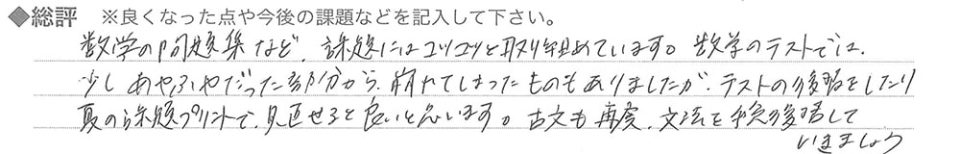 ◆総評 ※良くなった点や今後の課題などを記入して下さい。
数学の問題集など、課題にはコツコツと取り組めています。数学のテストでは、
少しあやふやだった部分から、崩れてしまったものもありましたが、テストの復習をしたり
夏の課題プリントで、見直せると良いと思います。古文も再度、文法を手堅く復習して
いきましょう